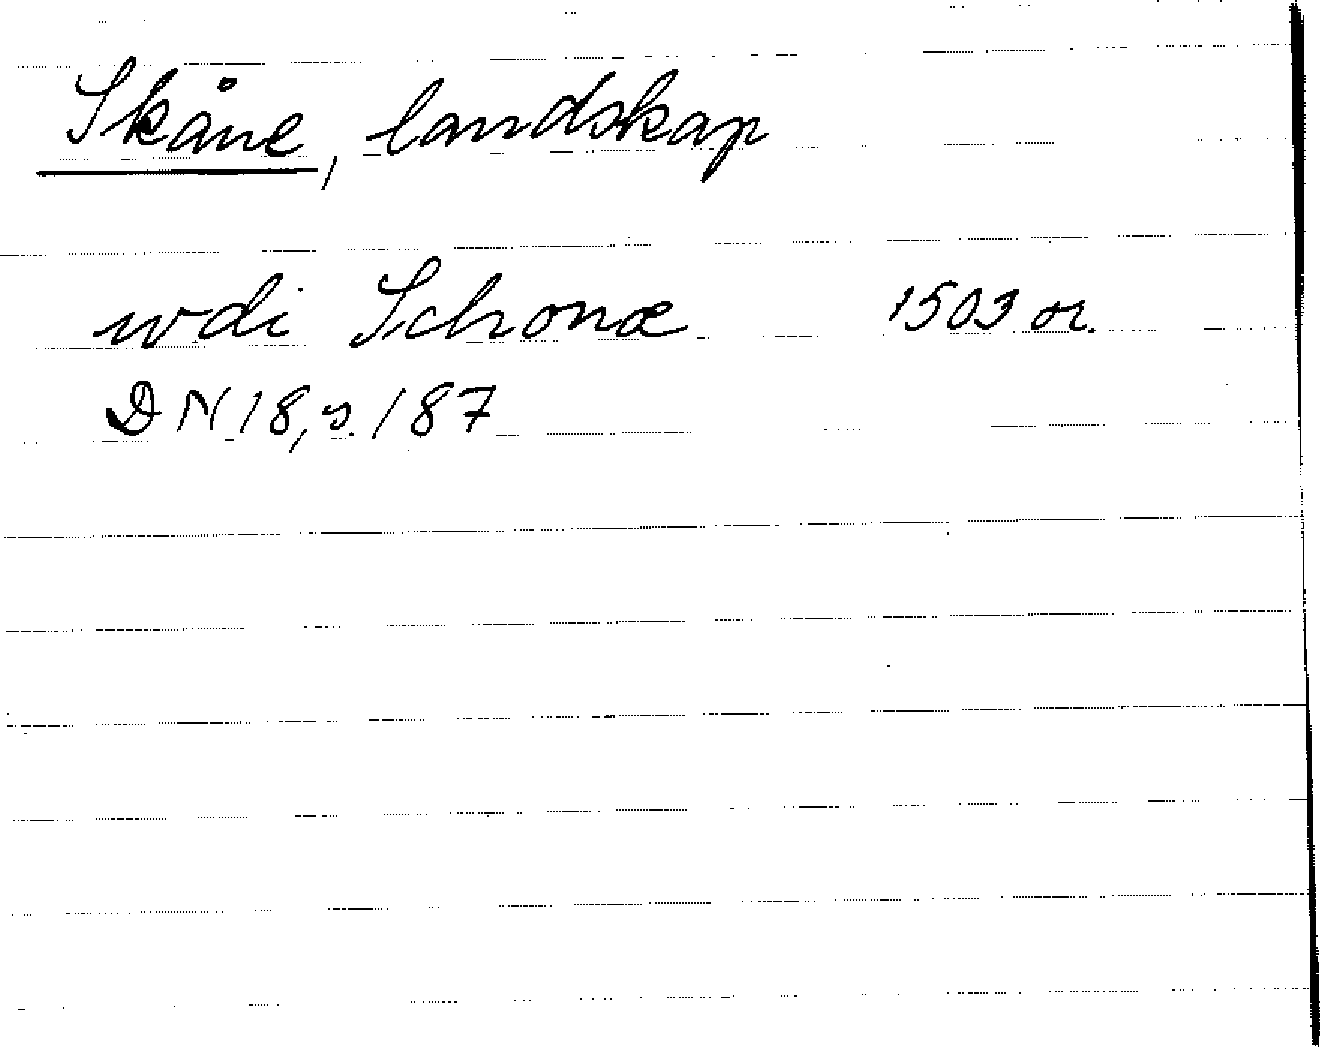 Skåne, landskap
wdi Schonæ 1503 or.
DN 18, s. 187